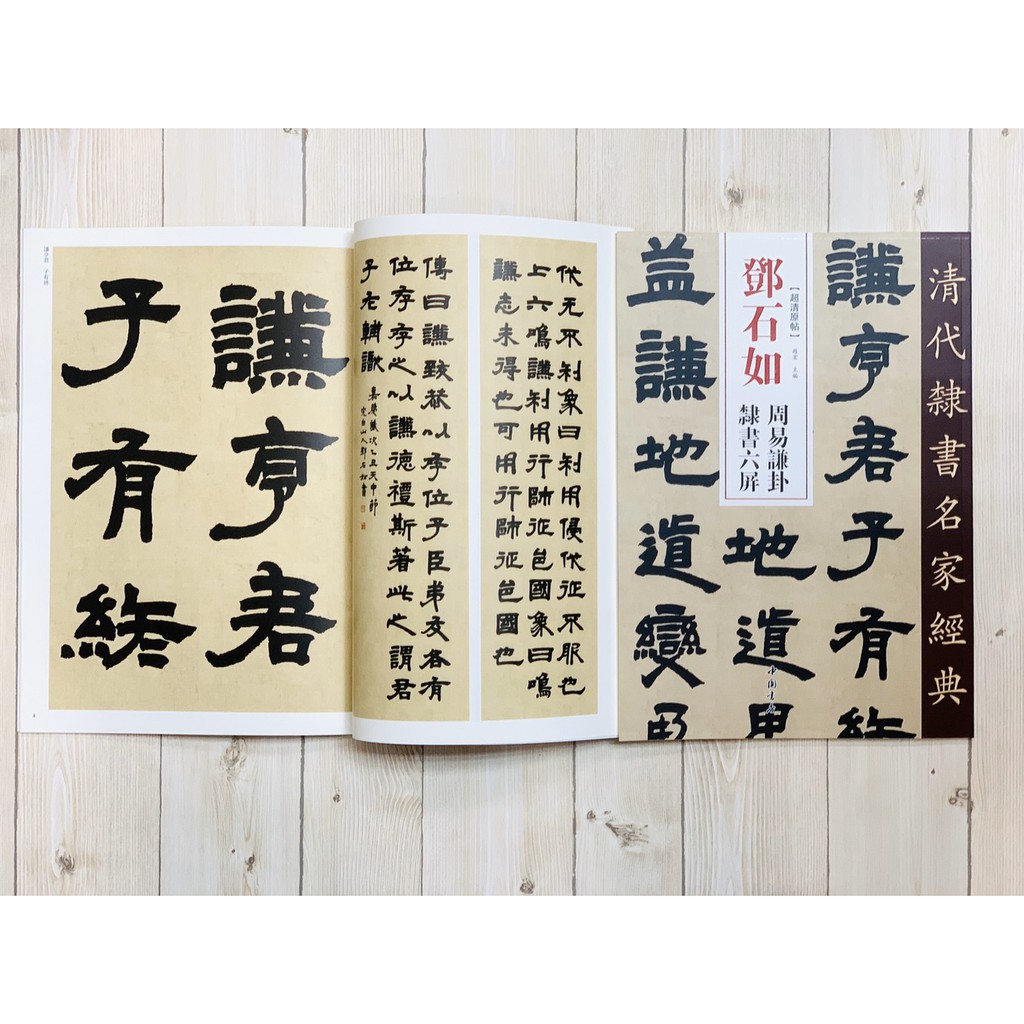 謙亨君 子有終
謙亨君
子有終
伐无不利象曰利用侵伐征不服也
上六鳴謙利用行師征邑國象曰鳴
謙志未得也可用行師征邑國也
傳曰謙致恭以存位子臣弟友各有
位存存之以謙德禮斯著此之謂君
子
嘉慶歲次乙丑天中節
完白山人鄧石如書
清代隸書名家經典
謙亨君子有終
【超清原帖】
主編
鄧石如
周易謙卦
隸書六屏
地道
益謙地道變
中国书店